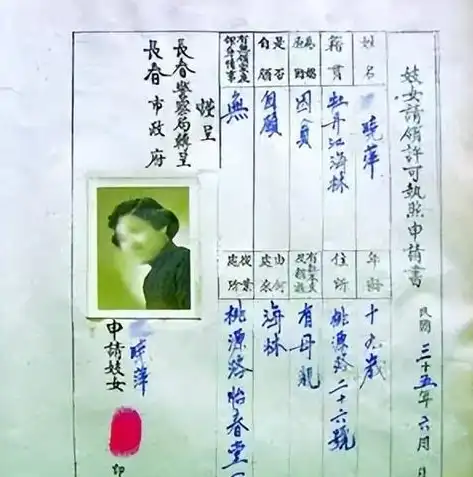 妓女請領許可執照申請書
民國三十五年六月
姓名
曉萍
年齡
十九歲
籍貫
牡丹江海林
住所
桃源路二十六號
為娼原因
因貧
有母親
是否自願
自願
由何處來
海林
無
從業處所
桃源路怡春堂
謹呈
長春警察局轉呈
長春市政府
申請妓女
曉萍
印